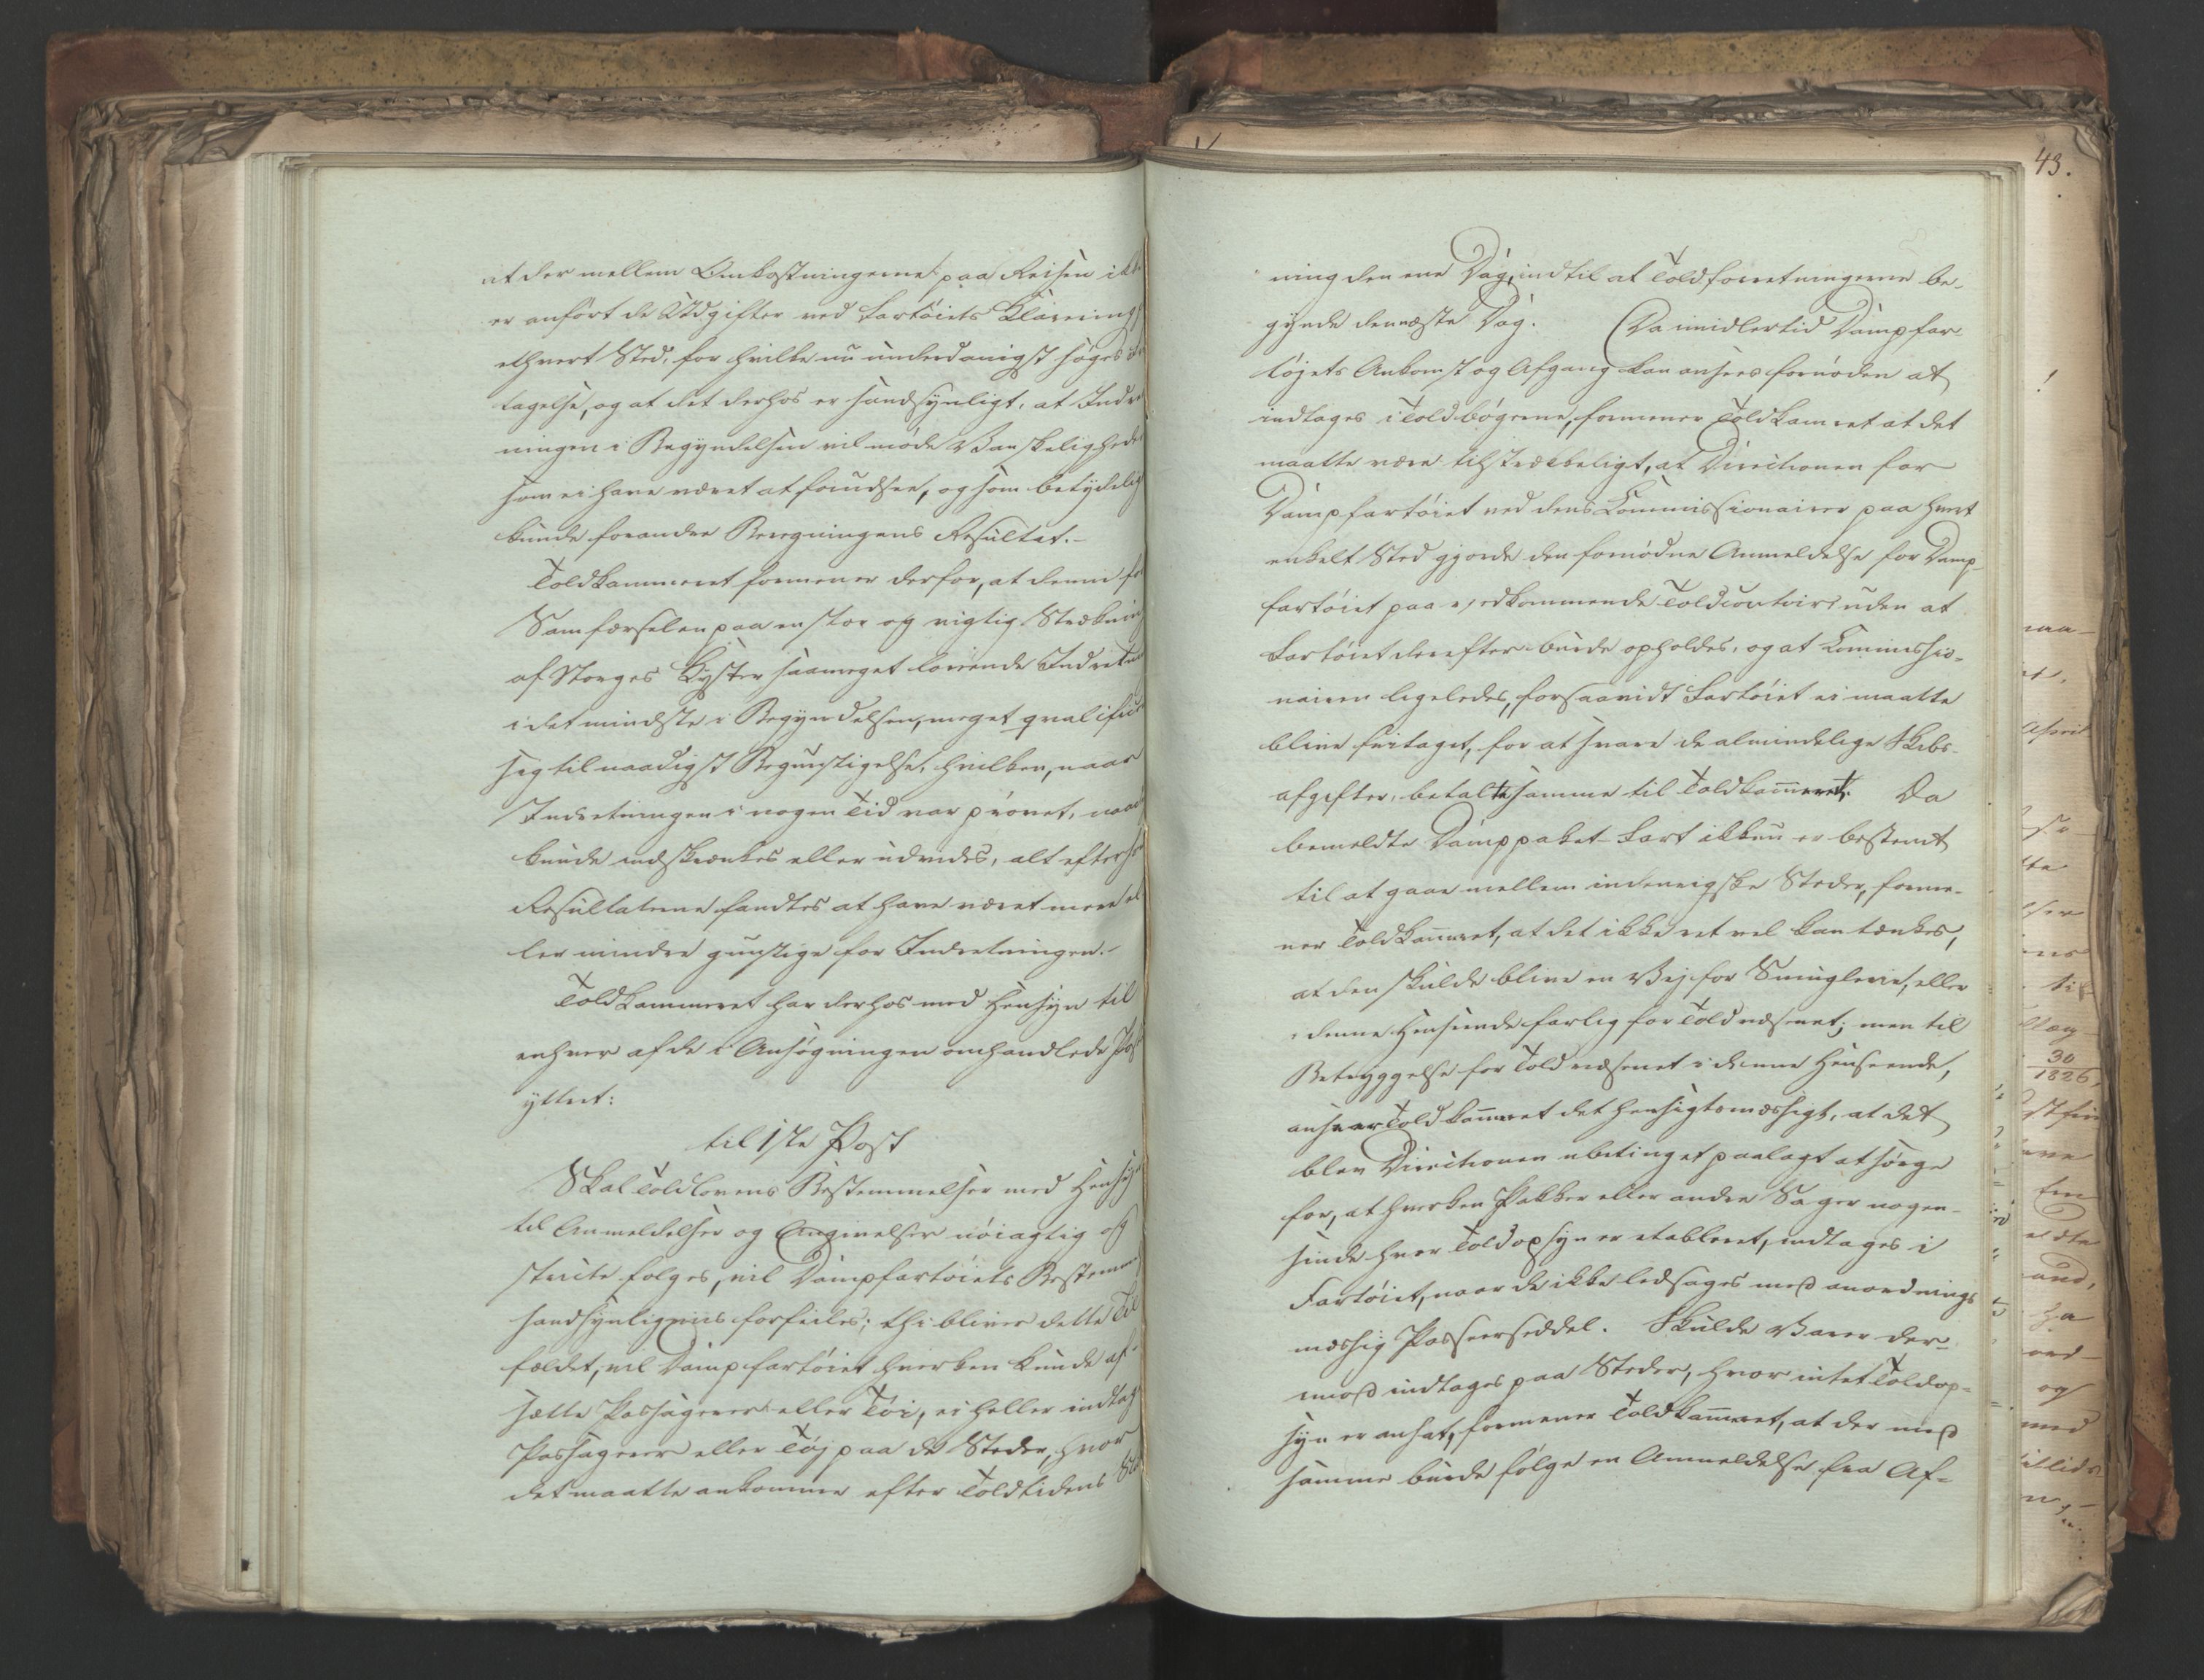 at der mellem Omkostningerne paa Reisen ikke
er anført de Udgifter ved Fartøiets Klarering
ethvert Sted, for hvilke nu underdanigst søges
tagelse, og at det derhos er sandsynligt, at Indret
ningen i Begyndelsen vil møde Vanskelighede
som ei have været at forudsee, og som betydelig
kunde forandre Beregningens Resultat.-
Toldkammeret formener derfor, at denne for
Samfærselen paa en stor og vigtig Strækning
af Norges Kyster saameget lovende Indretn
i det mindste i Begyndelsen, meget qvalificer
sig til naadigst Begunstigelse, hvilken, naar
Indretningen i nogen Tid var prøvet, naar
kunde indskrænkes eller udvides, alt eftersom
Resultaterne fandtes at have været mere el
ler mindre gunstige for Indretningen.-
Toldkammeret har derhos med Hensyn til
enhver af de i Ansøgningen omhandlede Post
yttret:
til 1ste Post
Skal Toldlovens Bestemmelser med Hensyn
til Anmeldelser og Angivelser nøiagtig og
stricte følges, vil Dampfartøiets Bestemm
sandsynligviis forfeiles; thi bliver dette Til
fældet, vil Dampfartøiet hverken kunde af-
sætte Passagerer eller Tøi, ei heller indtag
Passagerer eller Tøj paa de Steder, hvor
det maatte ankomme efter Toldtidens
43.
ning den ene Dag, indtil at Toldforretningerne be-
gynde dennæste Dag. Da imidlertid Dampfar-
tøjets Ankomst og Afgang kan ansees fornøden at
indtages i Toldbøgerne, formener Toldkamret at det
maatte være tilstrækkeligt, at Directionen for
Dampfartøiet ved dens Commissionairer paa hvert
enkelt Sted gjorde den fornødne Anmeldelse for Damp-
fartøiet paa vedkommende Toldcontoir, uden at
Fartøiet derefter burde opholdes, og at Commissio-
nairen ligeledes, forsaavidt Fartøiet ei maatte
blive fritaget, for at svare de almindelige Skibs-
afgifter, betalte samme til Toldkam̅eret. Da
bemeldte Damppaket-Fart ikkun er bestemt
til at gaae mellem indenrigske Steder, forme-
ner Toldkam̅eret, at det ikke ret vel kan tænkes,
at den skulde blive en Vej for Smuglerie, eller
i denne Henseende farlig for Toldvæsenet; men til
Betryggelse for Toldvæsenet i denne Henseende,
anseer Toldkam̅eret det hensigtsmæssigt, at det
blev Directionen ubetinget paalagt at sørge
for, at hverken Pakker eller andre Sager nogen-
sinde hvor Toldopsyn er etableret, indtages i
Fartøiet, naar de ikke ledsages med anordnings
mæssig Passeerseddel. Skulde Varer der-
imod indtages paa Steder, hvor intet Toldop-
syn er ansat, formener Toldkam̅eret, at der med
samme burde følge en Anmeldelse fra Af-